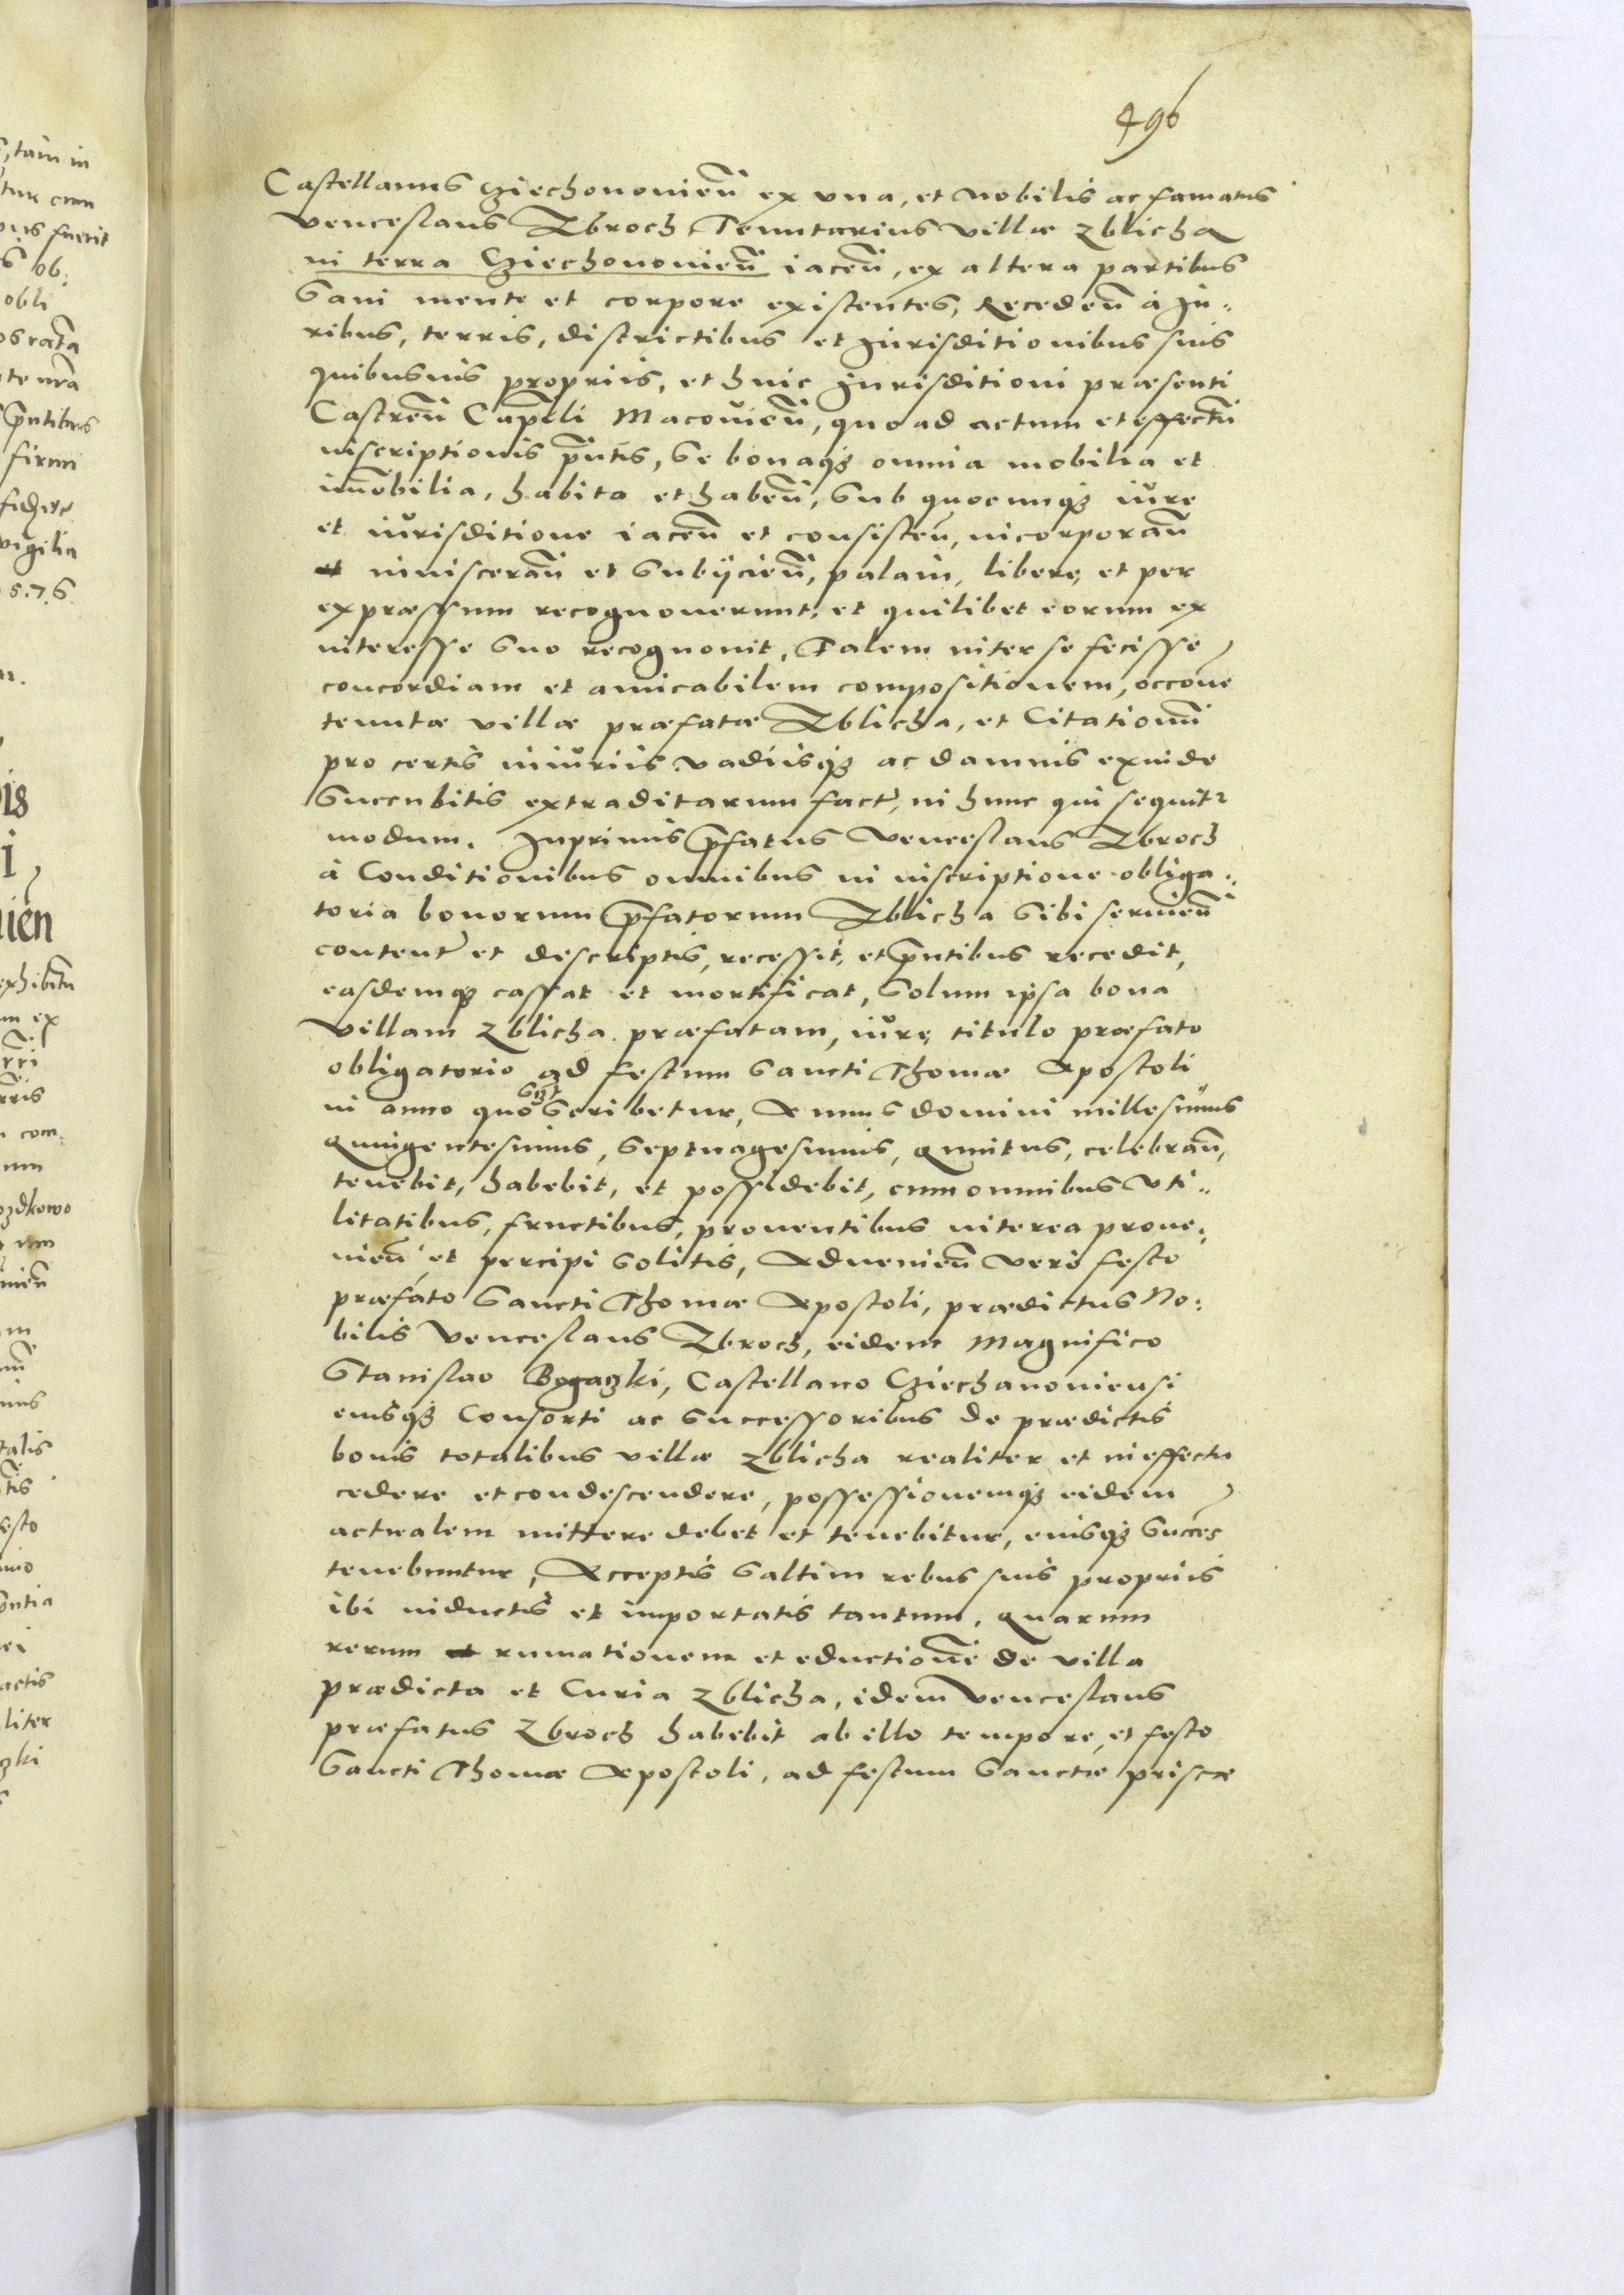 496
Castellanus Cziechonouień ex vna, et nobilis ac famatus
Venceslaus Zbroch Tenutarius villæ Zblicha
in terra Cziechonouień iaceń, ex altera partibus
Sani mente et corpore existentes, Recedeń à Ju„
ribus, terris, districtibus et Jurisditionibus suis
quibusuis propriis, et huic Jurisditioni præsenti
Castreń Capłli Macouień, quo ad actum et effectũ
inscriptionis pñtis, Se bonaqȝ omnia mobilia et
imõbilia, habita et habeń, Sub quocunqȝ iure
et iurisditione iaceń et consisteń, incorporań
inuisceradń et Subijcień, palam, libere, et per
expræssum recognouerunt, et quilibet eorum ex
interesse Suo recognouit, Talem inter se fecisse
concordiam et amicabilem compositionem, occõne
tenutæ villæ præfatæ Zblicha, et Citationũ
pro certis iniuriis vadiisqȝ ac damnis exinde
Succubitis extraditarum fact, in hunc qui sequit
modum. Inprimis pfatus Venceslaus Zbroch
à Conditionibus omnibus in inscriptione obliga„
toria bonorum pfatorum Zblicha Sibi seruień
content et descriptis, recessit, et pntibus recedit,
easdemqȝ cassat et mortificat, Solum ipsa bona
Villam Zblicha præfatam, iure, titulo præfato
obligatorio ad festum Sancti Thomæ Apostoli
in anno quo Scribetur, Annus domini millesimus
Quingentesimus, Septuagesimus, Quintus, celebrań,
tenebit, habebit, et possidebit, cum omnibus Vti„
litatibus, fructibus, prouentibus interea proue„
nień, et percipi Solitis, Aduenień vero festo
præfato Sancti Thomæ Apostoli, prædictus No„
bilis Venceslaus Zbroch, eidem Magnifico
Stanislao Bogaczki, Castellano Cziechanouiensi
eiusqȝ Consorti ac Successoribus de prædictis
bonis totalibus villæ Zblicha realiter et in effectu
cedere et condescendere, possessionemqȝ eidem
actualem mittere debet et tenebitur, eiusqȝ Succes
tenebuntur, Acceptis Saltim rebus suis propriis
ibi inductis et importatis tantum, Quarum
rerum rumationem et eductionẽ de villa
prædicta et Curia Zblicha, idem Venceslaus
præfatus Zbroch habebit ab illo tempore, et festo
Sancti Thomæ Apostoli, ad festum Sanctæ priscæ